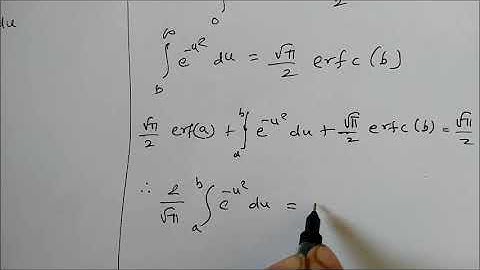 du
2
0
∫_b^∞ e^{-u²} du = √π/2 erfc(b)
√π/2 erf(a) + ∫_a^b e^{-u²} du + √π/2 erfc(b) = √π/2
∴ 2/√π ∫_a^b e^{-u²} du =